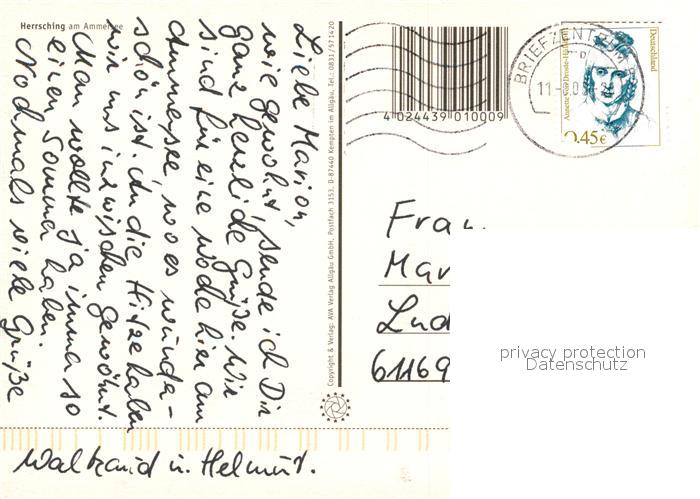 Herrsching am Ammersee
Liebe Marion,
wie gewohnt, sende ich Dir
ganz herzliche Grüße. Wir
sind für eine Woche hier am
Ammersee, wo es wunder-
schön ist. An die Hitze haben
wir uns inzwischen gewöhnt.
Man wollte ja immer so
einen Sommer haben.
Nochmals viele Grüße
Waltraud u. Helmut.
Copyright & Verlag: AVA Verlag Allgäu GmbH, Postfach 3153, D-87440 Kempten im Allgäu, Tel.: 0831/571420
4 024439 010009
BRIEFZENTRUM
Annette von Droste-Hülshoff
Deutschland
0.45€
Frau
Mar
Lud
61169
privacy protection
Datenschutz